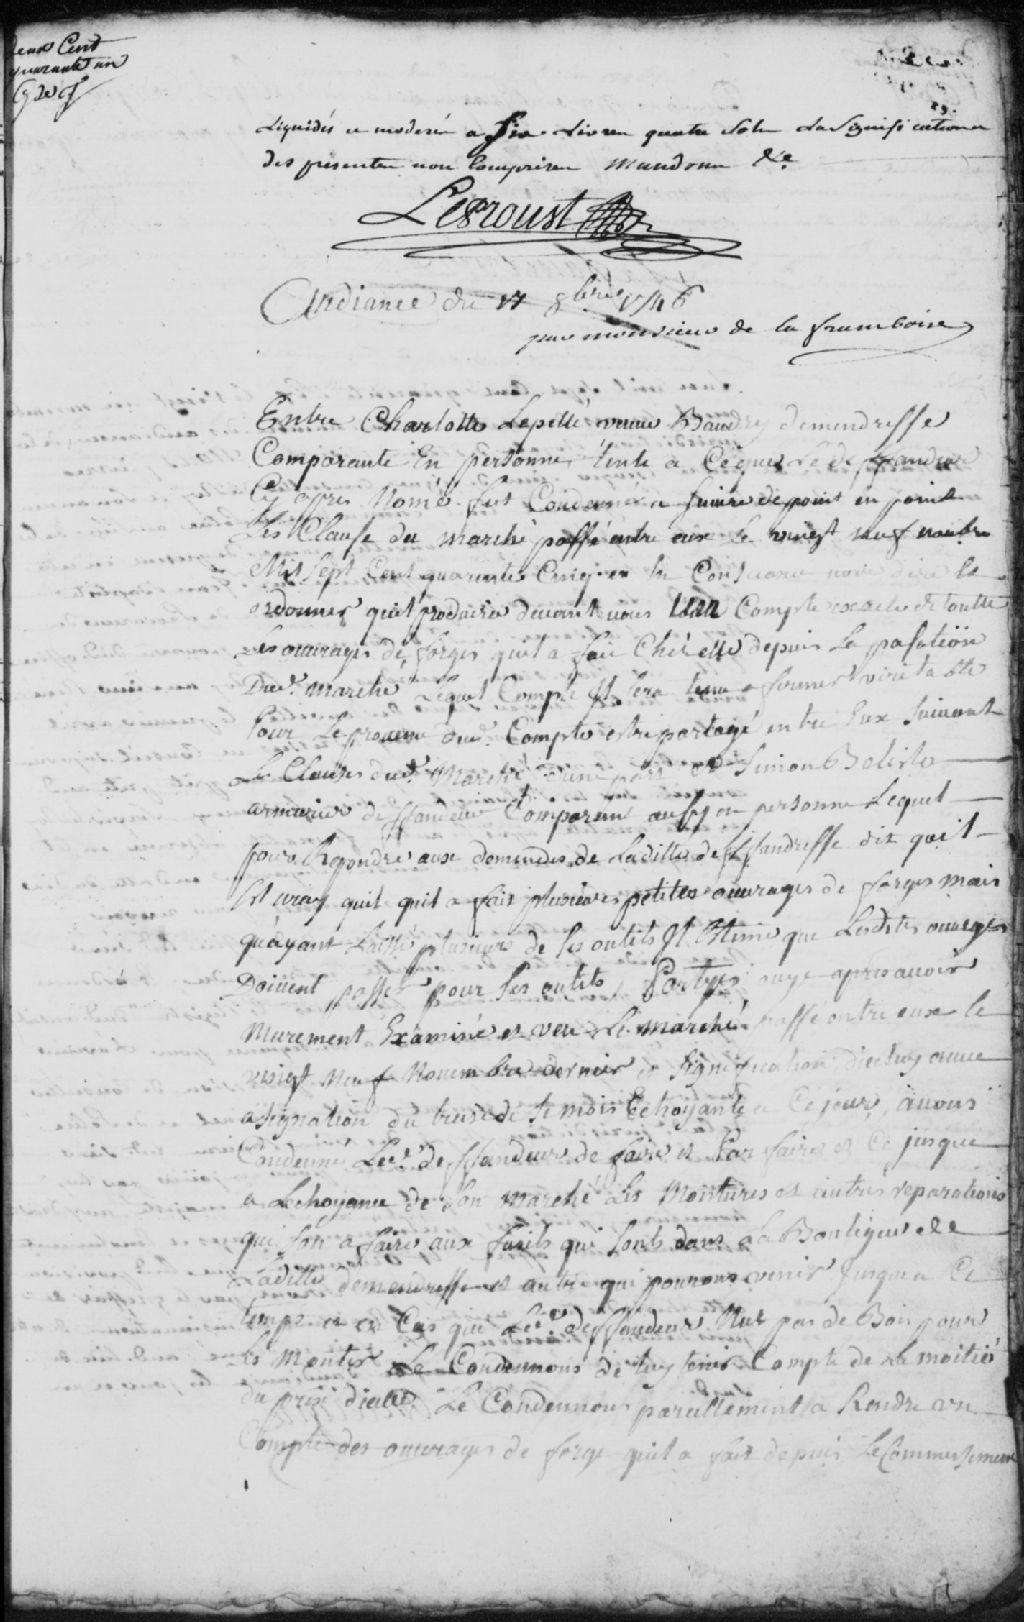 deux Cent
quarante un
Liquidés et moderés a Six Livres quatre Sols La Signification
des presentes non Comprises Mandons &c.
LeProust
Audiance du 17 8bre 1746
par monsieur de la framboise
Entre Charlotte Lepelle veuve Baudry demendresse
Comparante En personne tente a Ceque Le deffandeur
Cy apres Nomé fut Condemné a Suivre de point en point
Les Clause du marché passé entre eux Le vingt neuf novbre
Mil Sept Cent quarante Cinq en la Consequance dire
ordonner quil produira devant vous Un Compte exacte de toutte
Les ouvrages de forges quil a fait Chez elle depuis La pasation
Dud. Marché Lequel Compte Il Sera tenu a fournir veritable
Pour Le provenu dud. Compte estre partagé entre Eux Suivant
Le Clauses dud. Marché d'une part et Simon Bolislo
armurier deffandeur Comparant aussy en personne Lequel
pour Repondre aux demendes de Ladille demandresse dit quil
Est vray quil quil a fait plusieurs petites ouvrages de forges mais
quayant Laissé plusieurs de Ses outils Il Estime que Lesdits ouvrages
Doivent passer pour Ses outils, Partyes ouye apres avoir
Murement Examiné et veu Le marché passé entre eux le
vingt Neuf Novembre dernier et Signification dicelluy avec
asignation du treize de Se mois Echoyante a Ce jour, avons
Condemné Led. deffandeur de faire et Parfaire et Ce jusque
a Lechoyance de Son marché Les Montures et autres reparations
qui Son a faire aux fusils qui Sont dans La Boutique de
Ladille demendresse et autre qui pourons venir Jusqua Ce
temps et en Cas que Led. deffandeur Nut pas de Bois pour
Les Monter Le Condennons de luy tenir Compte de La moitié
du prix dicelle Le Condennons pareillement a Rendre un
Compte des ouvrages de forge quil a fait depuis Le Commessement